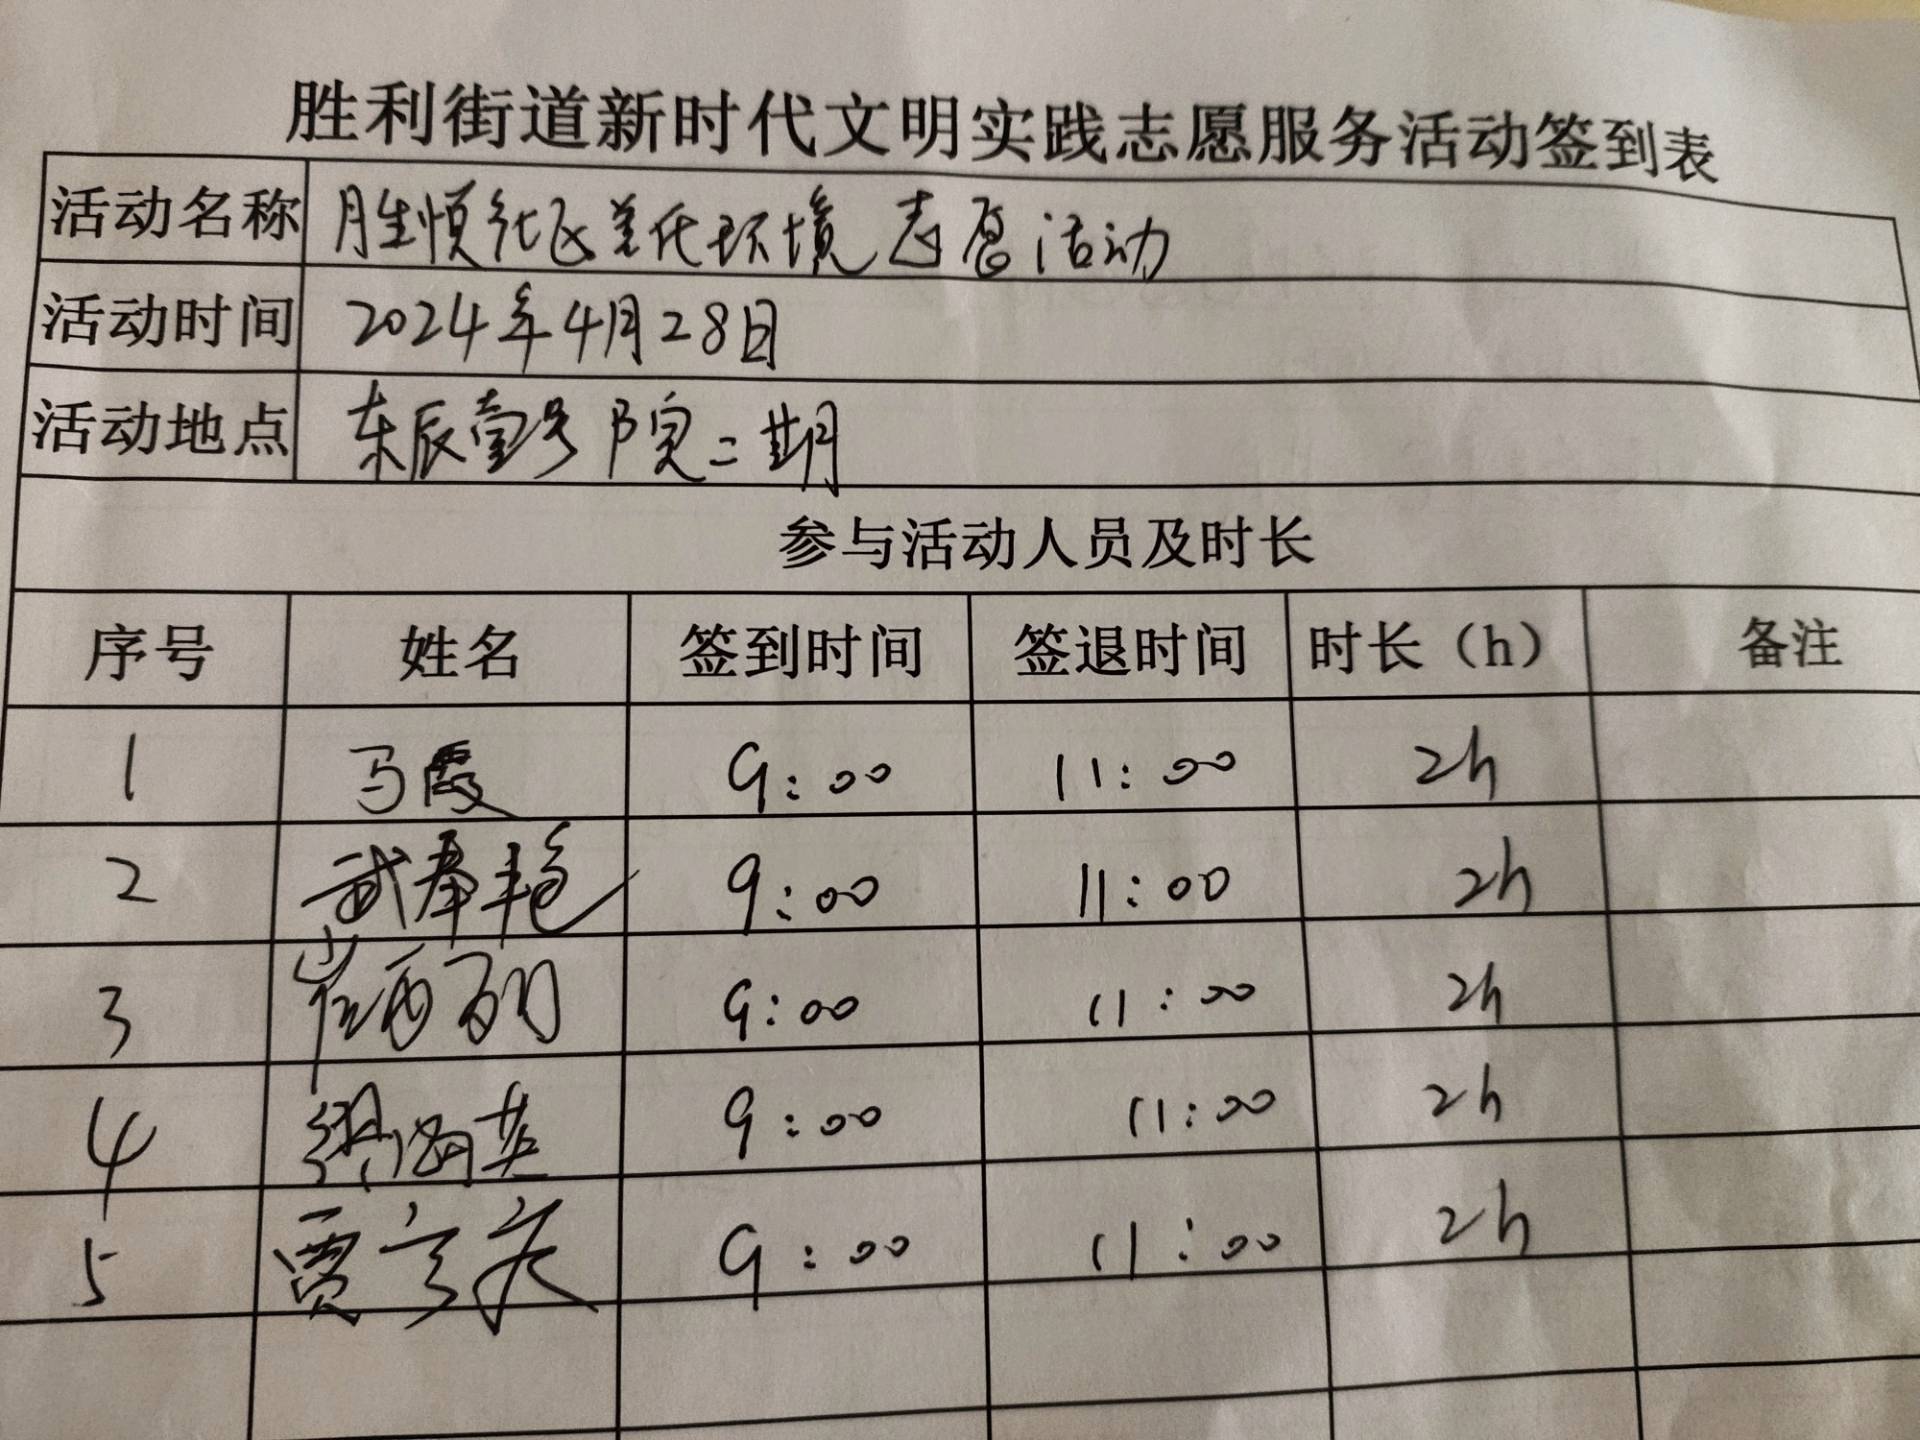 胜利街道新时代文明实践志愿服务活动签到表
活动名称 胜悦社区美化环境志愿活动
活动时间 2024年4月28日
活动地点 东辰壹号院二期
参与活动人员及时长
序号 姓名 签到时间 签退时间 时长（h） 备注
1 马霞 9:00 11:00 2h
2 武春艳 9:00 11:00 2h
3 9:00 11:00 2h
4 梁海英 9:00 11:00 2h
5 贾 9:00 11:00 2h